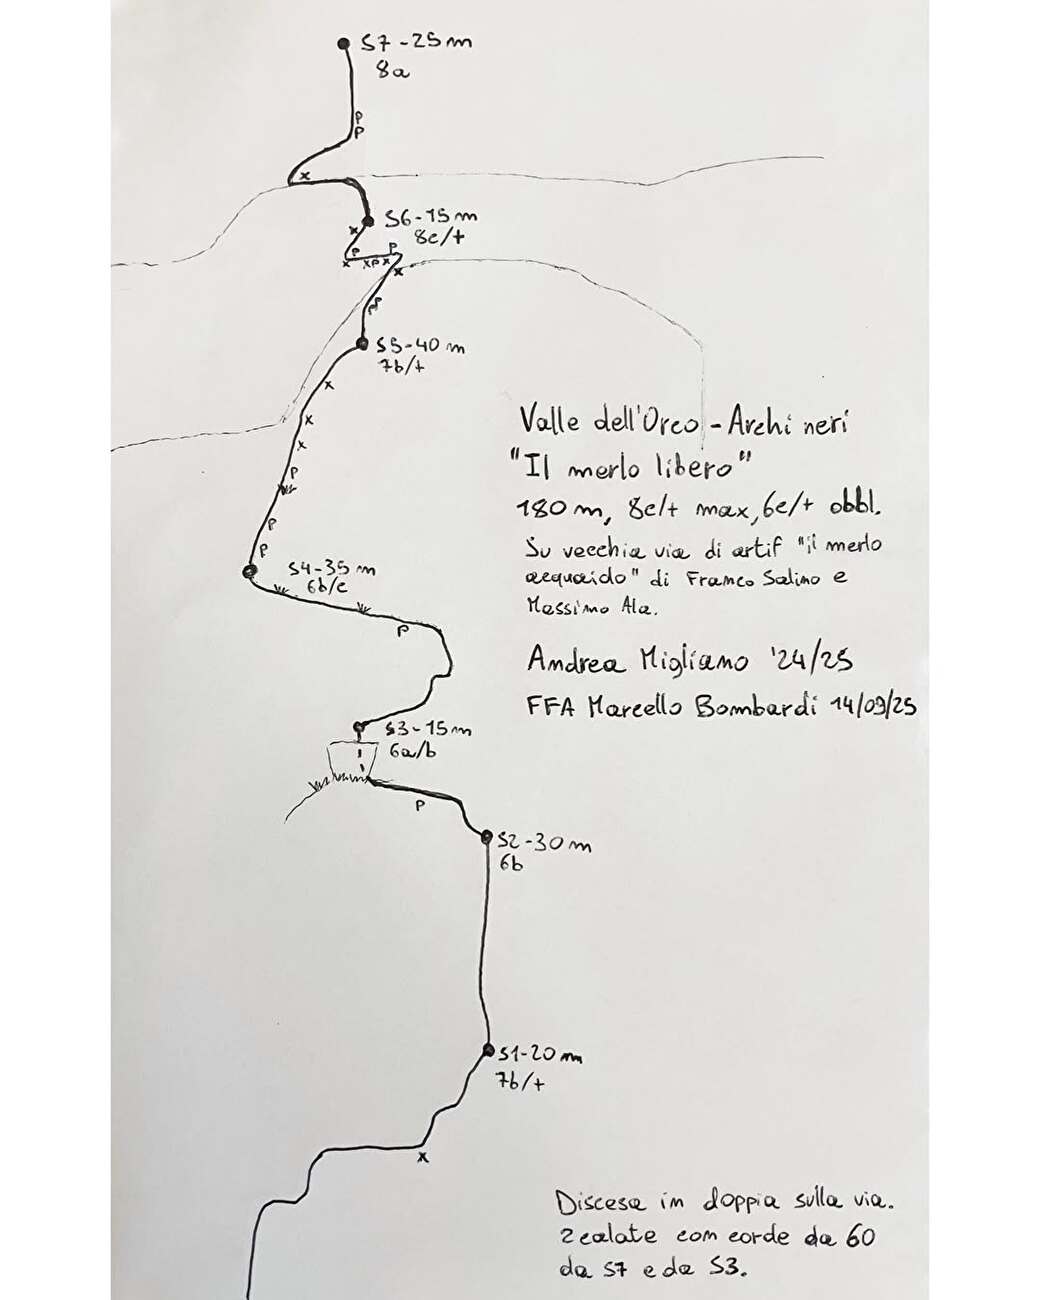 S7-25m
8a
P
P
x
S6-15m
8c/+
x
P
P
x
x
P
x
x
P
S5-40m
7b/+
x
x
x
P
P
P
Valle dell'Orco - Archi neri
"Il merlo libero"
180m, 8c/+ max, 6c/+ obbl.
Su vecchia via di artif "il merlo
acquaido" di Franco Salino e
Massimo Ala.
S4-35m
6b/c
P
Andrea Migliano '24/25
FFA Marcello Bombardi 14/09/25
S3-15m
6a/b
P
S2-30m
6b
S1-20m
7b/+
x
Discesa in doppia sulla via.
2 calate con corde da 60
da S7 e da S3.